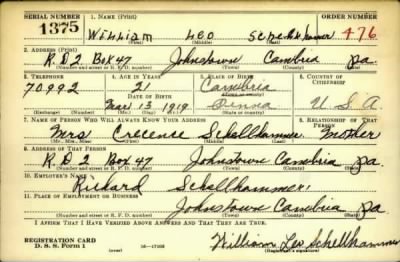 SERIAL NUMBER 1. NAME (Print) ORDER NUMBER
1375 William Leo Schellhammer 476
(First) (Middle) (Last)
2. ADDRESS (Print)
R.D 2 Box 47 Johnstown Cambria Pa.
(Number and street or R. F. D. number) (Town) (County) (State)
3. TELEPHONE 4. AGE IN YEARS 5. PLACE OF BIRTH 6. COUNTRY OF CITIZENSHIP
70992 21 Cambria
DATE OF BIRTH
Mar 13 1919 Penna U. S. A.
(Exchange) (Number) (Mo.) (Day) (Yr.) (State or country)
7. NAME OF PERSON WHO WILL ALWAYS KNOW YOUR ADDRESS 8. RELATIONSHIP OF THAT PERSON
Mrs Crecence Schellhammer Mother
(Mr., Mrs., Miss) (First) (Middle) (Last)
9. ADDRESS OF THAT PERSON
R.D 2 Box 47 Johnstown Cambria Pa.
(Number and street or R. F. D. number) (Town) (County) (State)
10. EMPLOYER'S NAME
Richard Schellhammer
11. PLACE OF EMPLOYMENT OR BUSINESS
Johnstown Cambria Pa
(Number and street or R. F. D. number) (Town) (County) (State)
I AFFIRM THAT I HAVE VERIFIED ABOVE ANSWERS AND THAT THEY ARE TRUE.
REGISTRATION CARD
D. S. S. Form 1 William Leo Schellhammer
(Registrant's signature)